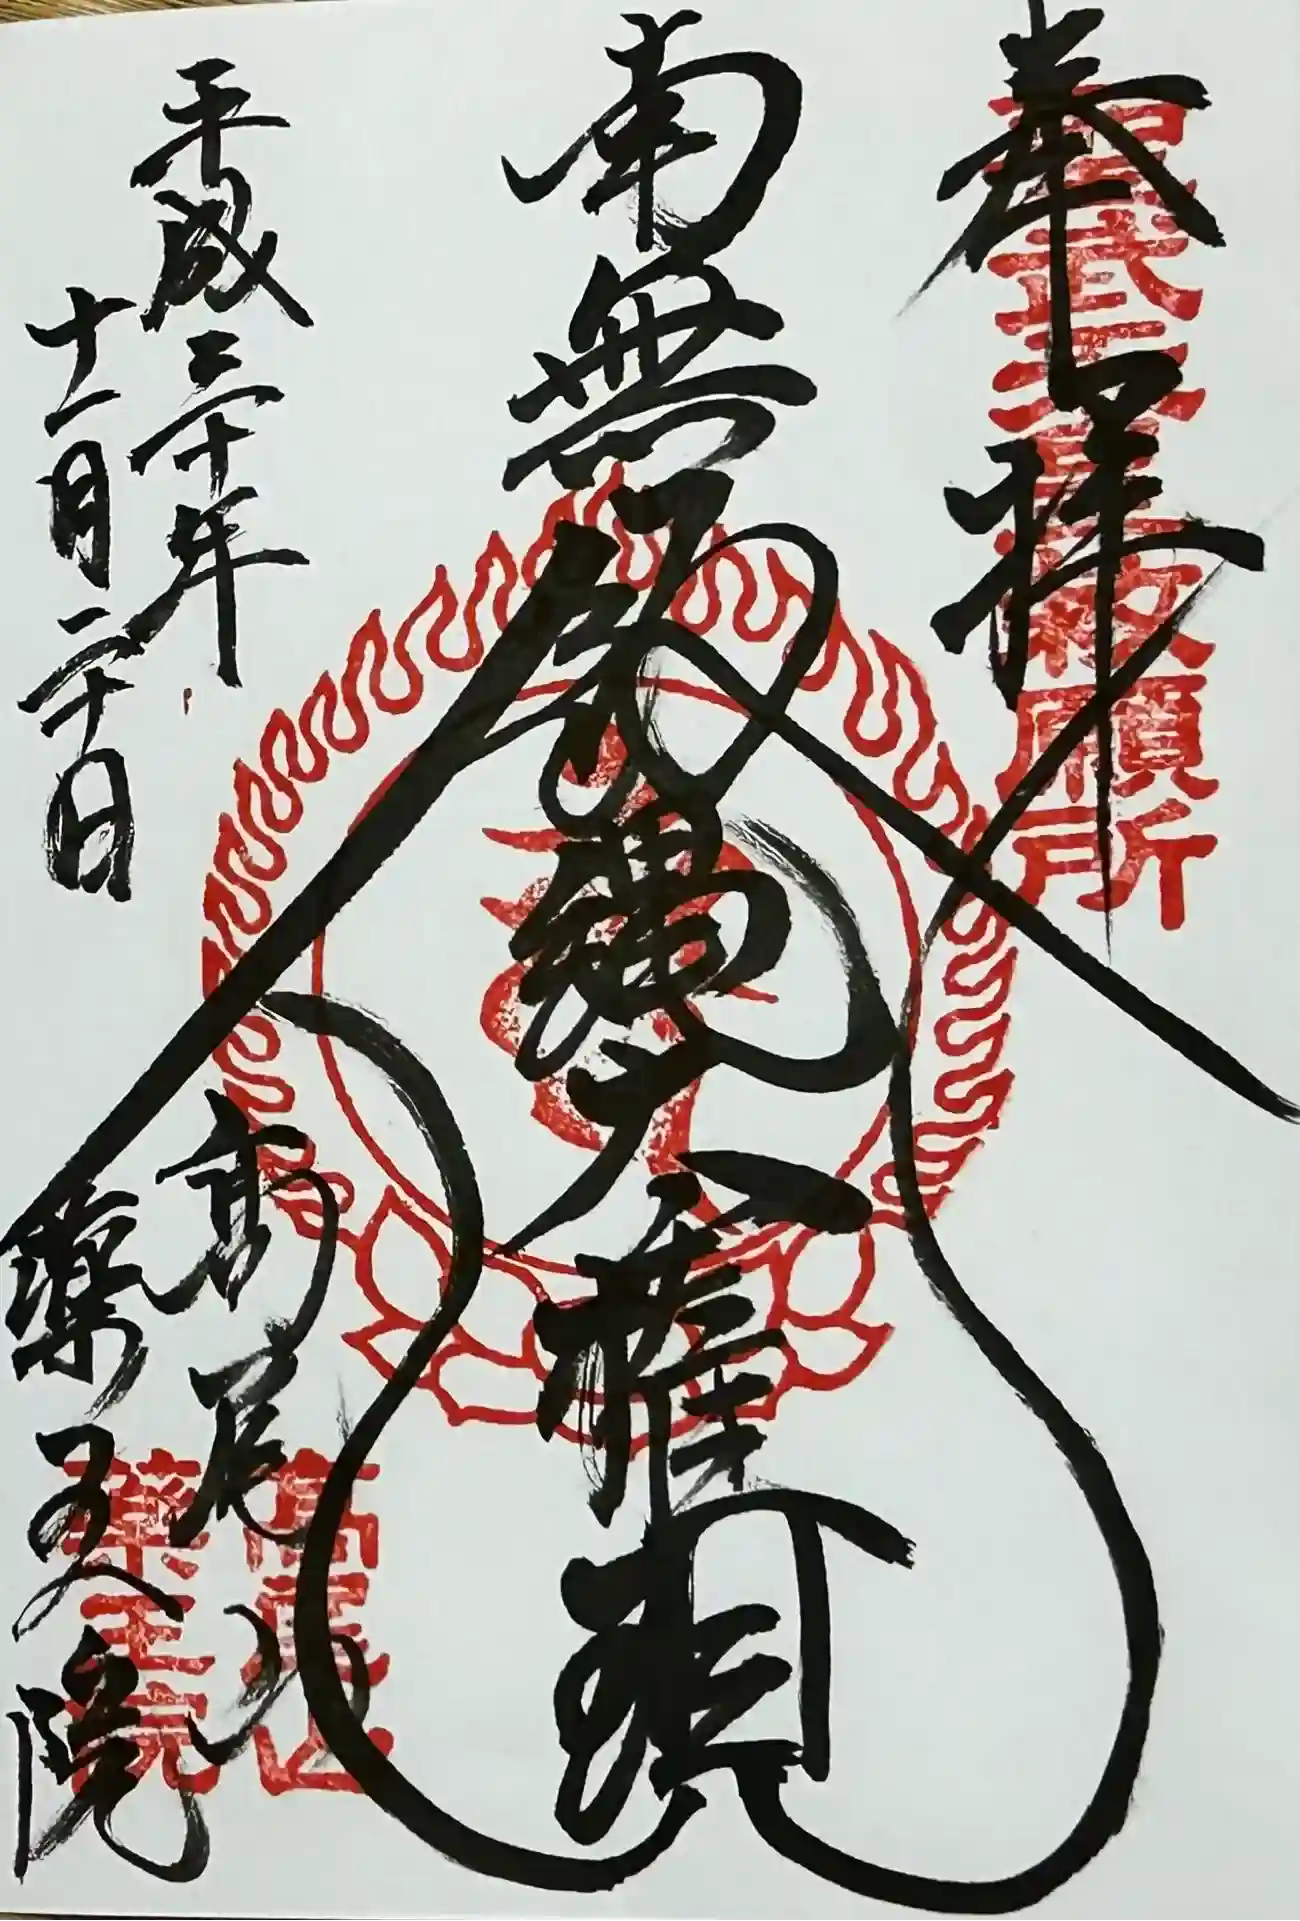 奉拝
聖武天皇勅願所
南無飯縄大権現
平成三十年
十一月二十日
高尾山
薬王院
高尾山
薬王院